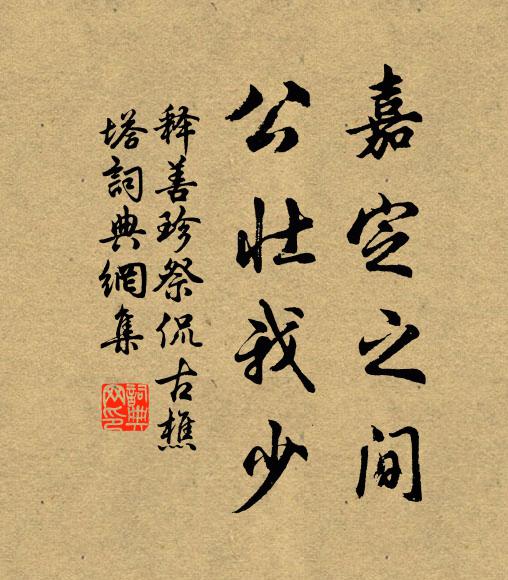 嘉定之间
公壮我少
释善珍祭侃古樵
塔詞典網集
詞典网印